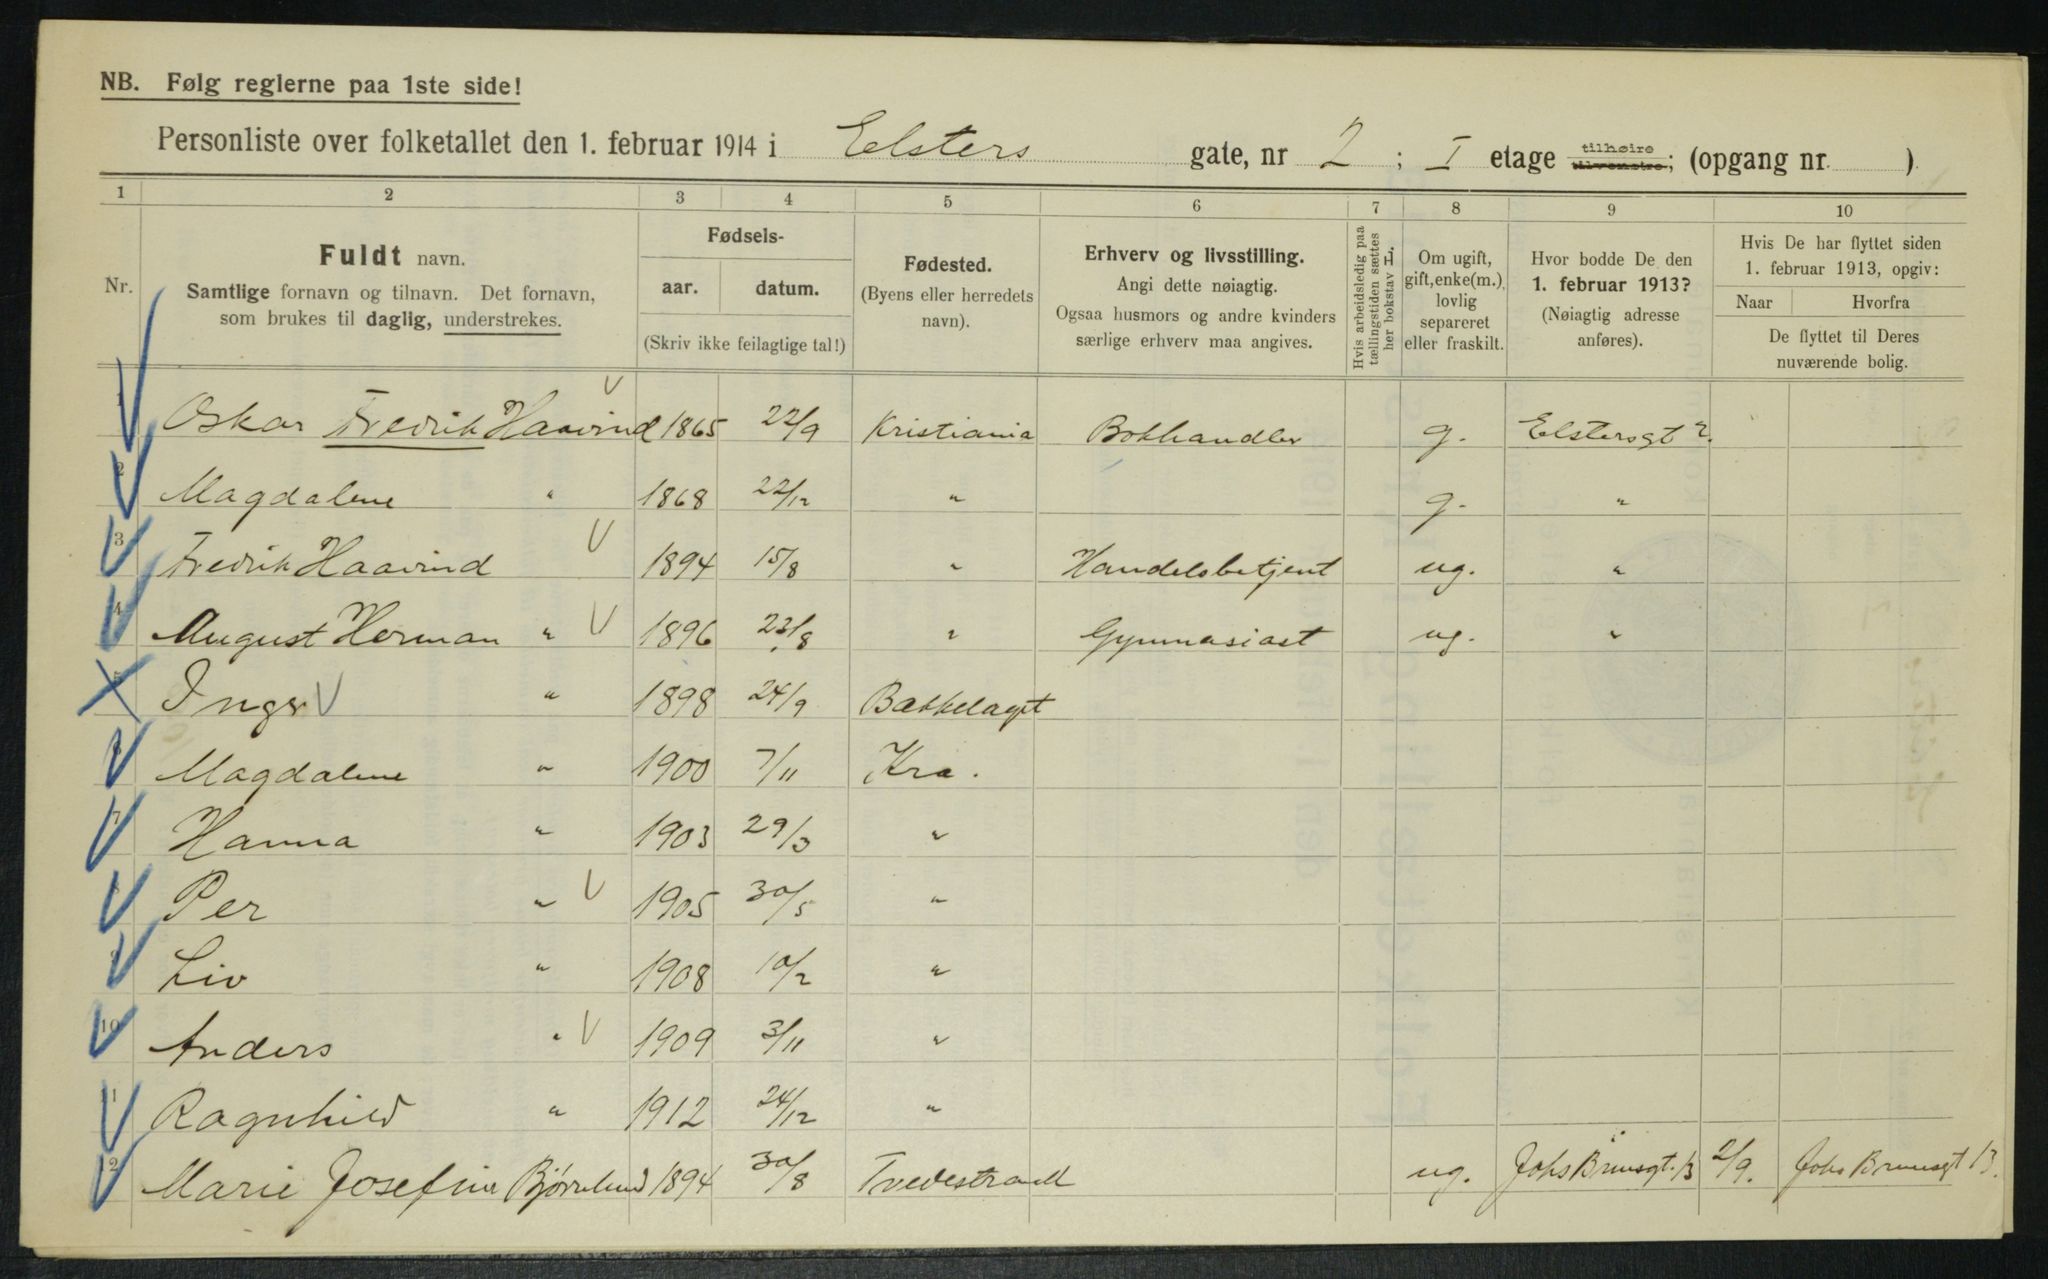 NB. Følg reglerne paa 1ste side!
Personliste over folketallet den 1. februar 1914 i Elsters gate, nr 2 ; I etage tilhøire tilvenstre; (opgang nr. )
1 2 3 4 5 6 7 8 9 10
Nr.
Fuldt navn.
Samtlige fornavn og tilnavn. Det fornavn,
som brukes til daglig, understrekes.
Fødsels-
aar. datum.
(Skriv ikke feilagtige tal!)
Fødested.
(Byens eller herredets
navn).
Erhverv og livsstilling.
Angi dette nøiagtig.
Ogsaa husmors og andre kvinders
særlige erhverv maa angives.
Hvis arbeidsledig paa
tællingstiden sættes
her bokstav L.
Om ugift,
gift, enke(m.),
lovlig
separeret
eller fraskilt.
Hvor bodde De den
1. februar 1913?
(Nøiagtig adresse
anføres).
Hvis De har flyttet siden
1. februar 1913, opgiv:
Naar Hvorfra
De flyttet til Deres
nuværende bolig.
1 Oskar Fredrik Haavind 1865 22/9 Kristiania Bokhandler g. Elstersgt 2.
2 Magdalene " 1868 22/12 " g. "
3 Fredrik Haavind 1894 15/8 " Handelsbetjent ug. "
4 August Herman " 1896 23/8 " Gymnasiast ug. "
5 Inger " 1898 24/9 Bækkelaget
6 Magdalene " 1900 7/11 Kra.
7 Hanna " 1903 29/3 "
8 Per " 1905 30/5 "
9 Liv " 1908 10/2 "
10 Anders " 1909 3/11 "
11 Ragnhild " 1912 24/12 "
12 Marie Josefine Bjørnlund 1894 30/8 Tvedestrand ug. Johs Brunsgt. 13 2/9. Johs Brunsgt 13.